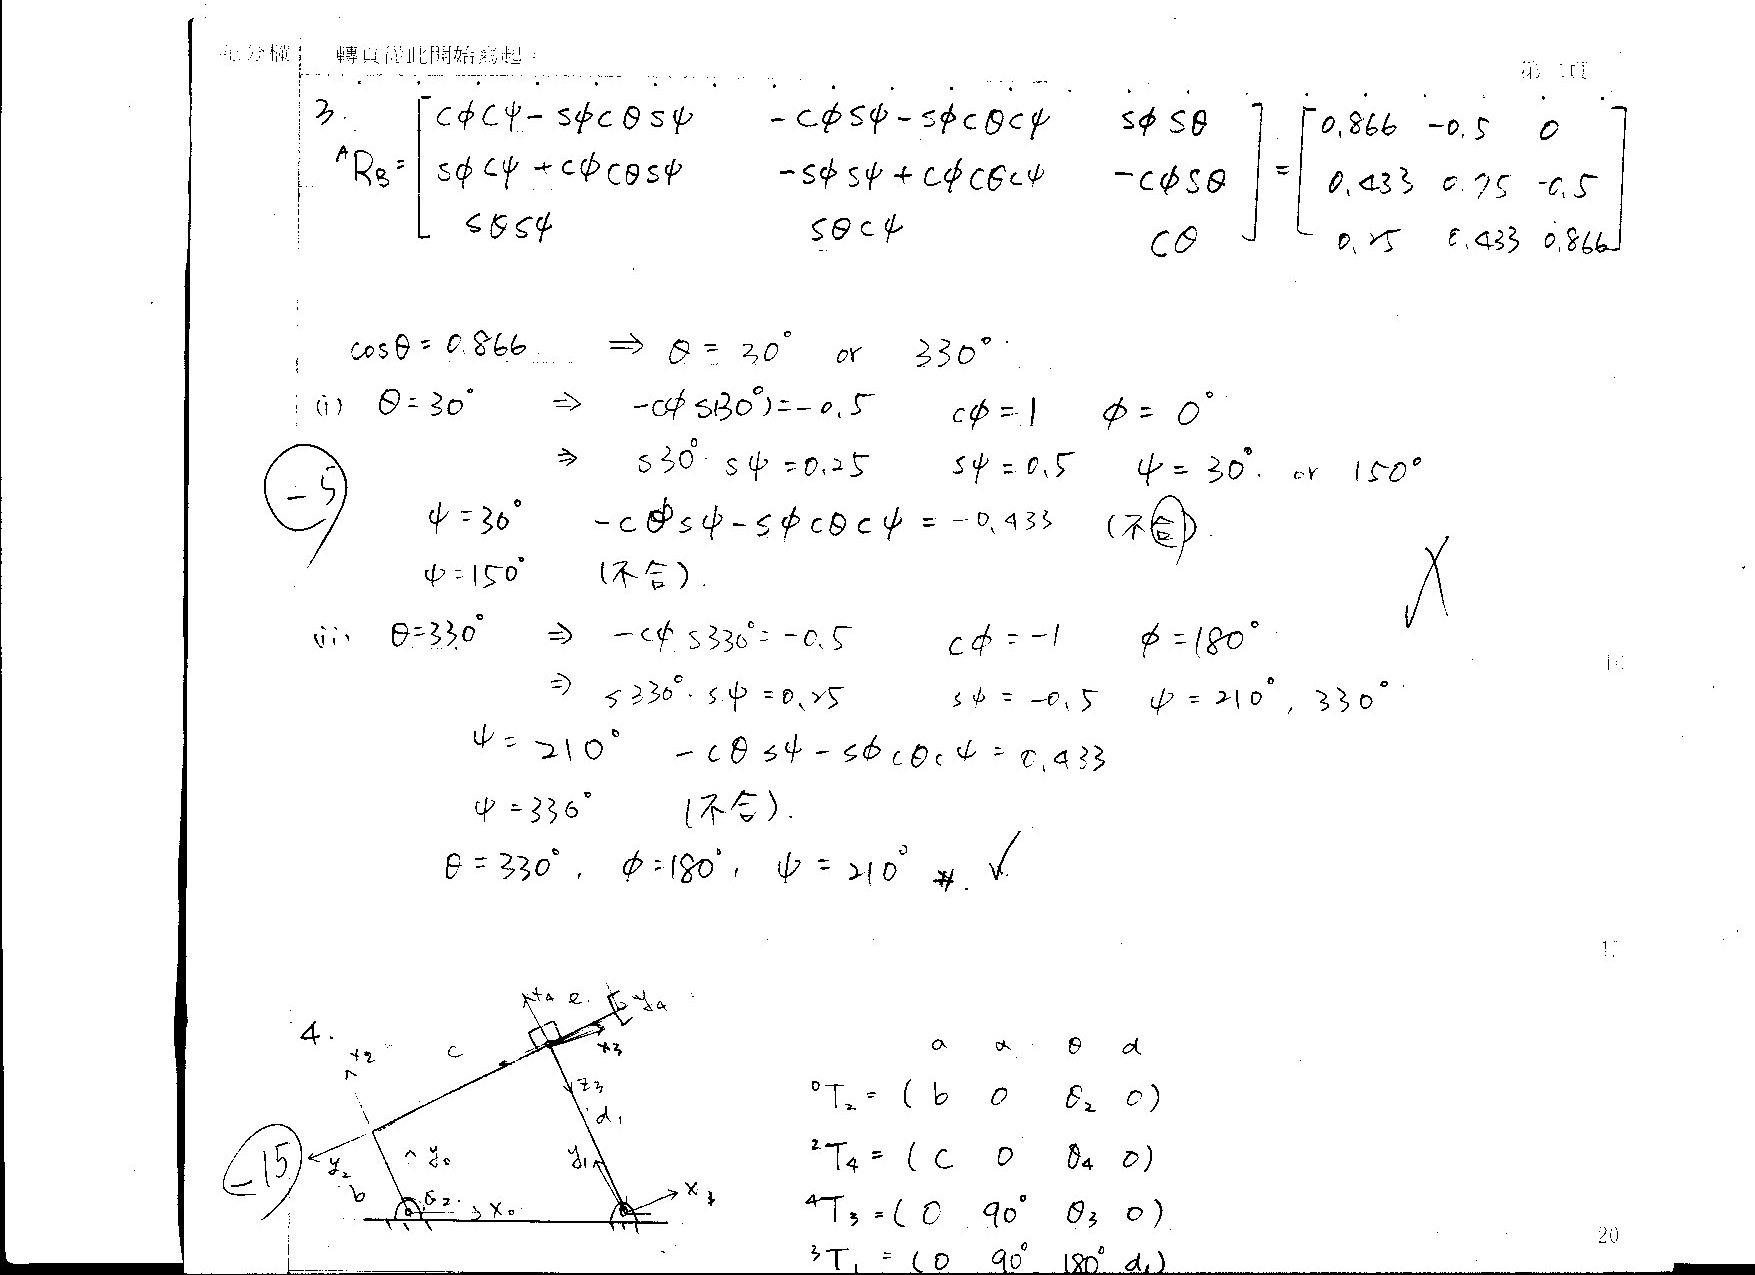 轉頁從此開始寫起
3.
ᴬR_B = [ cφcψ-sφcθsψ   -cφsψ-sφcθcψ   sφsθ ] = [ 0.866 -0.5 0 ]
[ sφcψ+cφcθsψ   -sφsψ+cφcθcψ   -cφsθ ]   [ 0.433 0.75 -0.5 ]
[ sθsψ   sθcψ   cθ ]   [ 0.25 0.433 0.866 ]
cosθ = 0.866 ⇒ θ = 30° or 330°
(i) θ=30° ⇒ -cφ s(30°)=-0.5 cφ=1 φ=0°
⇒ s30°·sψ=0.25 sψ=0.5 ψ=30° or 150°
-5
ψ=30° -cθsψ-sφcθcψ = -0.433 (不合).
ψ=150° (不合).
(ii) θ=330° ⇒ -cφ s330°=-0.5 cφ=-1 φ=180°
⇒ s330°·sψ=0.25 sψ=-0.5 ψ=210°, 330°
ψ=210° -cθsψ-sφcθcψ=0.433
ψ=330° (不合).
θ=330°, φ=180°, ψ=210° #. ✓
4.
x4 e. y4
x2 c x3
z3
d1
-15
y2 y0 y1
b θ2 x0
a α θ d
⁰T₂ = ( b 0 θ2 0)
²T₄ = ( c 0 θ4 0)
⁴T₃ = ( 0 90° θ3 0)
³T₁ = ( 0 90° 180° d1)
20